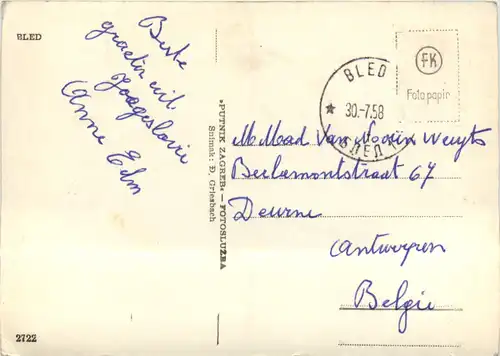 BLED
Beste
groeten uit
Joegoslavie
Anne Edm
»PUTNIK ZAGREB« — FOTOSLUŽBA
Snimak: Đ. Griesbach
BLED
* 30.-7.58
FK
Foto papir
M Mad Van Nooten Weuyts
Berlaemontstraat 67
Deurne
Antwerpen
Belgie
2722